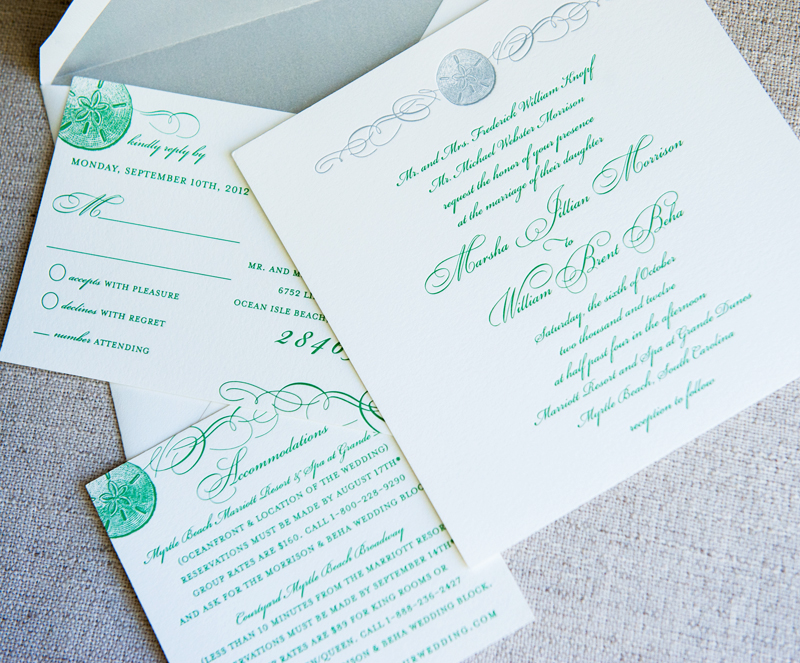 Mr. and Mrs. Frederick William Knopf
Mr. Michael Webster Morrison
request the honor of your presence
at the marriage of their daughter
Marsha Jillian Morrison
to
William Brent Beha
Saturday, the sixth of October
two thousand and twelve
at half past four in the afternoon
Marriott Resort and Spa at Grande Dunes
Myrtle Beach, South Carolina
reception to follow
kindly reply by
MONDAY, SEPTEMBER 10TH, 2012
M
accepts WITH PLEASURE
declines WITH REGRET
number ATTENDING
MR. AND M
6752
OCEAN ISLE BEACH
2846
Accommodations
Myrtle Beach Marriott Resort & Spa at Grande
(OCEANFRONT & LOCATION OF THE WEDDING)
RESERVATIONS MUST BE MADE BY AUGUST 17TH*
GROUP RATES ARE $160. CALL 1-800-228-9290
AND ASK FOR THE MORRISON & BEHA WEDDING BLOC
Courtyard Myrtle Beach Broadway
(LESS THAN 10 MINUTES FROM THE MARRIOTT RESOR
RESERVATIONS MUST BE MADE BY SEPTEMBER 14TH*
RATES ARE $89 FOR KING ROOMS OR
N/QUEEN. CALL 1-888-236-2427
MORRISON & BEHA WEDDING BLOCK.
URWEDDING.COM